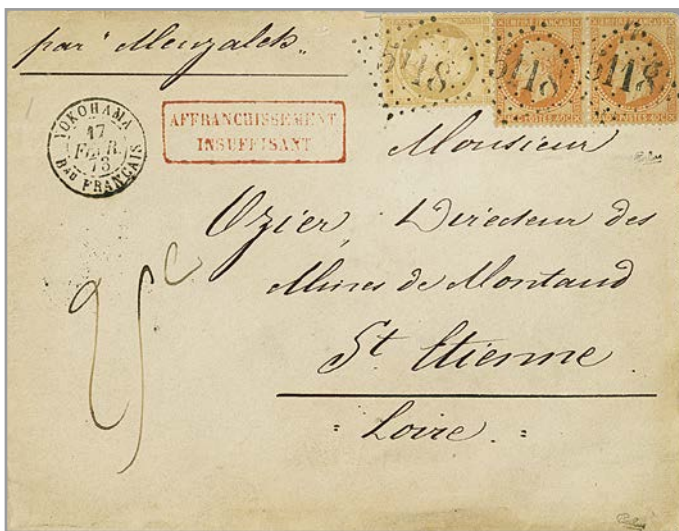 par "Menzaleh"
5118 5118 5118
YOKOHAMA
17
FEVR.
73
Bau FRANÇAIS
AFFRANCHISSEMENT
INSUFFISANT
Monsieur
Ozier, Directeur des
Mines de Montaud
St Etienne
= Loire. =
25c